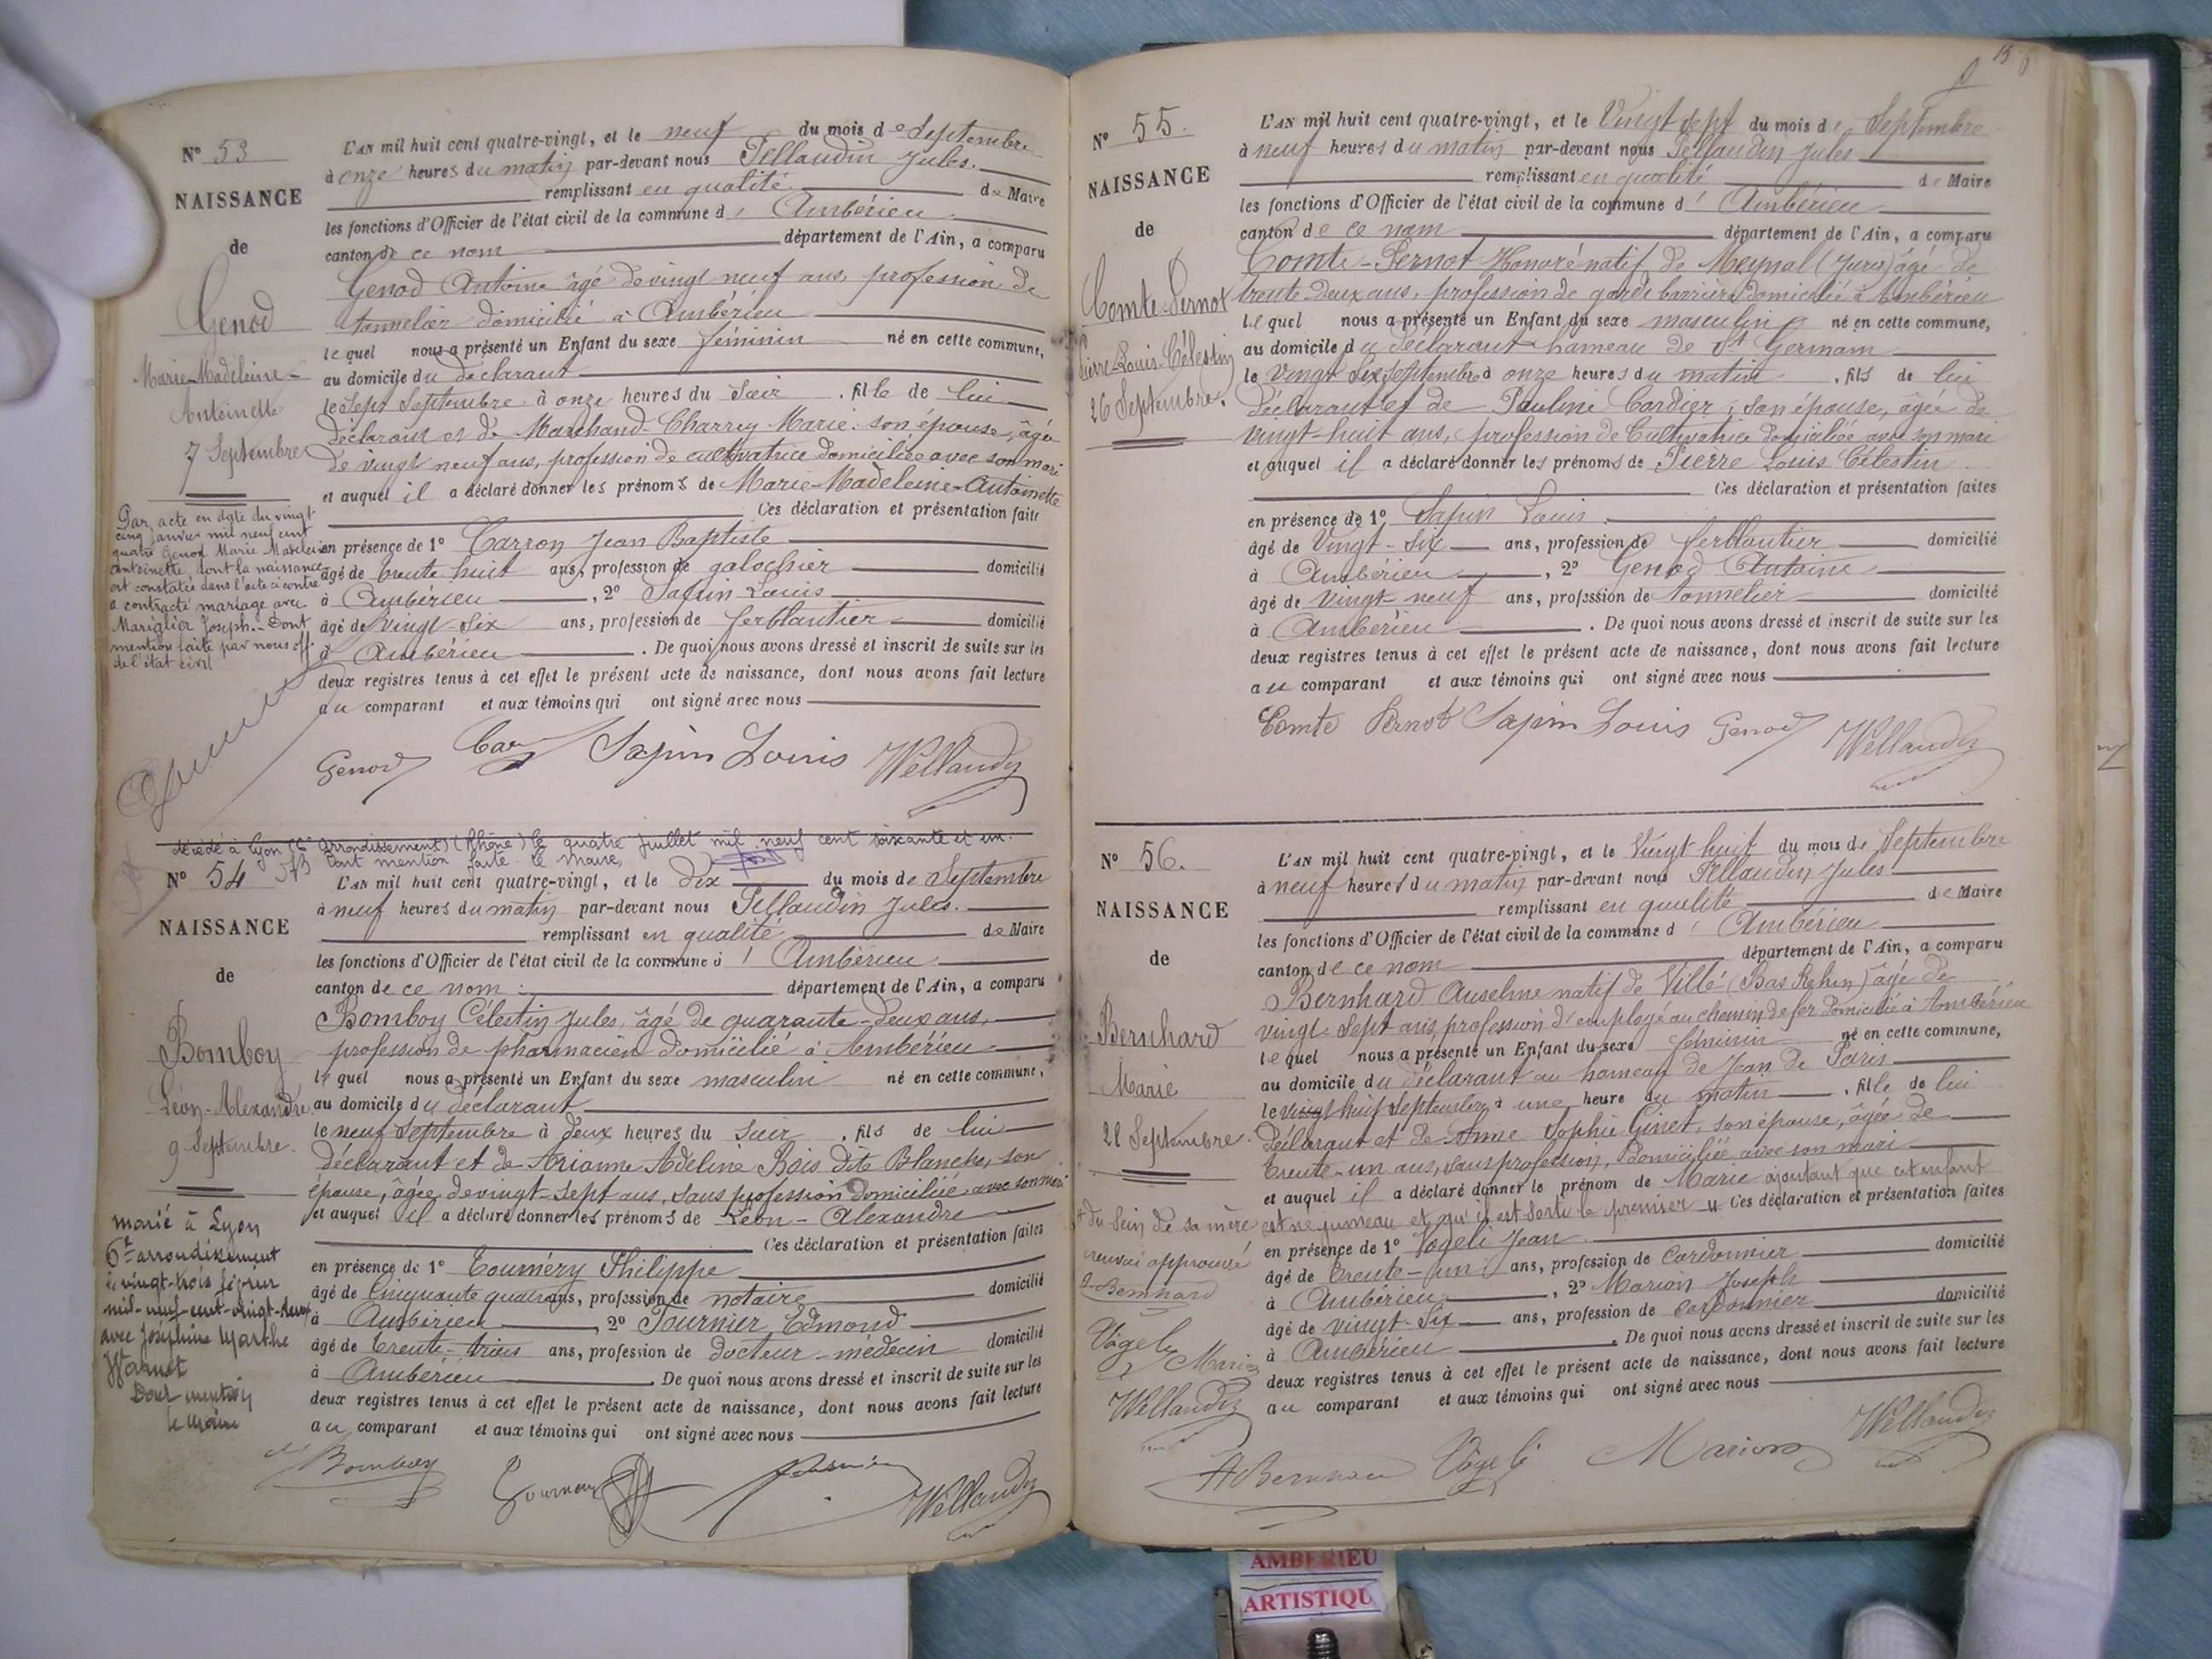 N° 53
NAISSANCE
de
Genod
Marie-Madeleine-
Antoinette
7 Septembre
Par acte en date du vingt
cinq janvier mil neuf cent
quatre Genod Marie Madeleine
Antoinette, dont la naissance
est constatée dans l'acte ci contre
a contracté mariage avec
Mariglier Joseph. - Dont
mention faite par nous off.
de l'état civil
L'AN mil huit cent quatre-vingt, et le neuf du mois de Septembre
à onze heures du matin par-devant nous Pellaudin Jules.
remplissant en qualité de Maire
les fonctions d'Officier de l'état civil de la commune d' Ambérieu
canton de ce nom département de l'Ain, a comparu
Genod Antoine âgé de vingt neuf ans, profession de
tonnelier domicilié à Ambérieu
lequel nous a présenté un Enfant du sexe féminin né en cette commune,
au domicile du déclarant
le Sept Septembre à onze heures du Soir, fille de lui
déclarant et de Marchand-Charrey Marie son épouse, âgée
de vingt neuf ans, profession de cultivatrice domiciliée avec son mari
et auquel il a déclaré donner les prénoms de Marie-Madeleine-Antoinette
Ces déclaration et présentation faite
en présence de 1° Carron Jean Baptiste
âgé de trente huit ans, profession de galochier domicilié
à Ambérieu, 2° Sapin Louis
âgé de vingt-six ans, profession de ferblantier domicilié
à Ambérieu. De quoi nous avons dressé et inscrit de suite sur les
deux registres tenus à cet effet le présent acte de naissance, dont nous avons fait lecture
au comparant et aux témoins qui ont signé avec nous
Genod Sapin Louis
décédé à Lyon (6e arrondissement) (Rhône) le quatre juillet mil neuf cent soixante et un.
dont mention faite. le maire,
N° 54
NAISSANCE
de
Bomboy
Léon-Alexandre
9 Septembre.
marié à Lyon
6e arrondissement
le vingt-trois février
mil-neuf-cent-vingt-deux
avec Joséphine Marthe
Dont mention
le Maire
L'AN mil huit cent quatre-vingt, et le dix du mois de Septembre
à neuf heures du matin par-devant nous Pellaudin Jules.
remplissant en qualité de Maire
les fonctions d'Officier de l'état civil de la commune d' Ambérieu
canton de ce nom département de l'Ain, a comparu
Bomboy Célestin Jules, âgé de quarante-deux ans,
profession de pharmacien domicilié à Ambérieu
lequel nous a présenté un Enfant du sexe masculin né en cette commune,
au domicile du déclarant
le neuf Septembre à deux heures du soir, fils de lui
déclarant et de Arianne Adeline Bois dite Blanche, son
épouse, âgée de vingt-sept ans, sans profession domiciliée avec son mari
et auquel il a déclaré donner les prénoms de Léon-Alexandre
Ces déclaration et présentation faites
en présence de 1° Tournéry Philippe
âgé de Cinquante quatre ans, profession de notaire domicilié
à Ambérieu, 2° Fournier Edmond
âgé de trente-trois ans, profession de docteur-médecin domicilié
à Ambérieu. De quoi nous avons dressé et inscrit de suite sur les
deux registres tenus à cet effet le présent acte de naissance, dont nous avons fait lecture
au comparant et aux témoins qui ont signé avec nous
Bomboy
N° 55.
NAISSANCE
de
Comte-Pernot
Pierre-Louis-Célestin
26 Septembre.
L'AN mil huit cent quatre-vingt, et le Vingt sept du mois de Septembre
à neuf heures du matin par-devant nous Pellaudin Jules
remplissant en qualité de Maire
les fonctions d'Officier de l'état civil de la commune d' Ambérieu
canton de ce nom département de l'Ain, a comparu
Comte-Pernot Honoré natif de Meynal (Jura) âgé de
trente deux ans, profession de garde barrière domicilié à Ambérieu
lequel nous a présenté un Enfant du sexe masculin né en cette commune,
au domicile du déclarant hameau de St Germain
le vingt six Septembre à onze heures du matin, fils de lui
déclarant et de Pauline Cordier, son épouse, âgée de
vingt-huit ans, profession de Cultivatrice domiciliée avec son mari
et auquel il a déclaré donner les prénoms de Pierre Louis Célestin
Ces déclaration et présentation faites
en présence de 1° Sapin Louis
âgé de Vingt-six ans, profession de ferblantier domicilié
à Ambérieu, 2° Genod Antoine
âgé de vingt-neuf ans, profession de tonnelier domicilié
à Ambérieu. De quoi nous avons dressé et inscrit de suite sur les
deux registres tenus à cet effet le présent acte de naissance, dont nous avons fait lecture
au comparant et aux témoins qui ont signé avec nous
Comte Pernot Sapin Louis Genod
N° 56.
NAISSANCE
de
Bernhard
Marie
28 Septembre.
du sein de sa mère
renvoi approuvé
Bernhard
L'AN mil huit cent quatre-vingt, et le Vingt huit du mois de Septembre
à neuf heures du matin par-devant nous Pellaudin Jules
remplissant en qualité de Maire
les fonctions d'Officier de l'état civil de la commune d' Ambérieu
canton de ce nom département de l'Ain, a comparu
Bernhard Anselme natif de Villé (Bas Rhin) âgé de
vingt-sept ans, profession d'employé au chemin de fer domicilié à Ambérieu
lequel nous a présenté un Enfant du sexe féminin né en cette commune,
au domicile du déclarant au hameau de Jean de Paris
le vingt huit Septembre à une heure du matin, fille de lui
déclarant et de Anne Sophie Ginet, son épouse, âgée de
trente-un ans, sans profession, domiciliée avec son mari
et auquel il a déclaré donner le prénom de Marie ajoutant que cet enfant
est né jumeau et qu'il est sorti le premier Ces déclaration et présentation faites
en présence de 1° Vögeli Jean
âgé de trente-un ans, profession de cordonnier domicilié
à Ambérieu, 2° Marion Joseph
âgé de vingt-six ans, profession de cordonnier domicilié
à Ambérieu. De quoi nous avons dressé et inscrit de suite sur les
deux registres tenus à cet effet le présent acte de naissance, dont nous avons fait lecture
au comparant et aux témoins qui ont signé avec nous
Vögeli Marion
AMBERIEU
ARTISTIQU